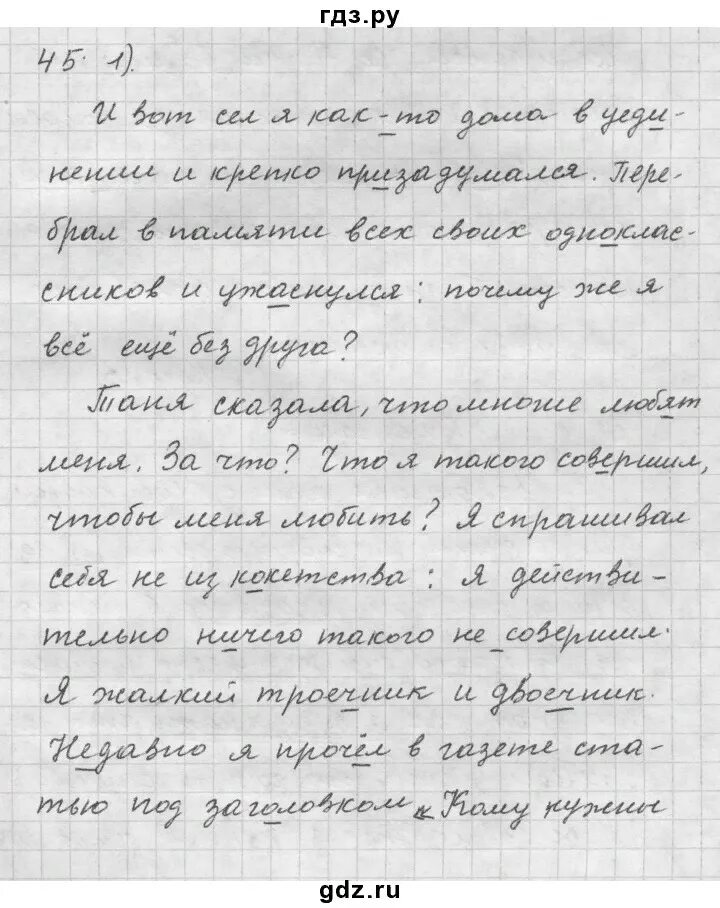 гдз.ру
45. 1).
И вот сел я как-то дома в уеди-
нении и крепко призадумался. Пере-
брал в памяти всех своих однoклас-
сников и ужаснулся: почему же я
всё ещё без друга?
Таня сказала, что многие любят
меня. За что? Что я такого совершил,
чтобы меня любить? Я спрашивал
себя не из кокетства: я действи-
тельно ничего такого не совершил.
Я жалкий троечник и двоечник.
Недавно я прочёл в газете ста-
тью под заголовком «Кому нужны
gdz.ru